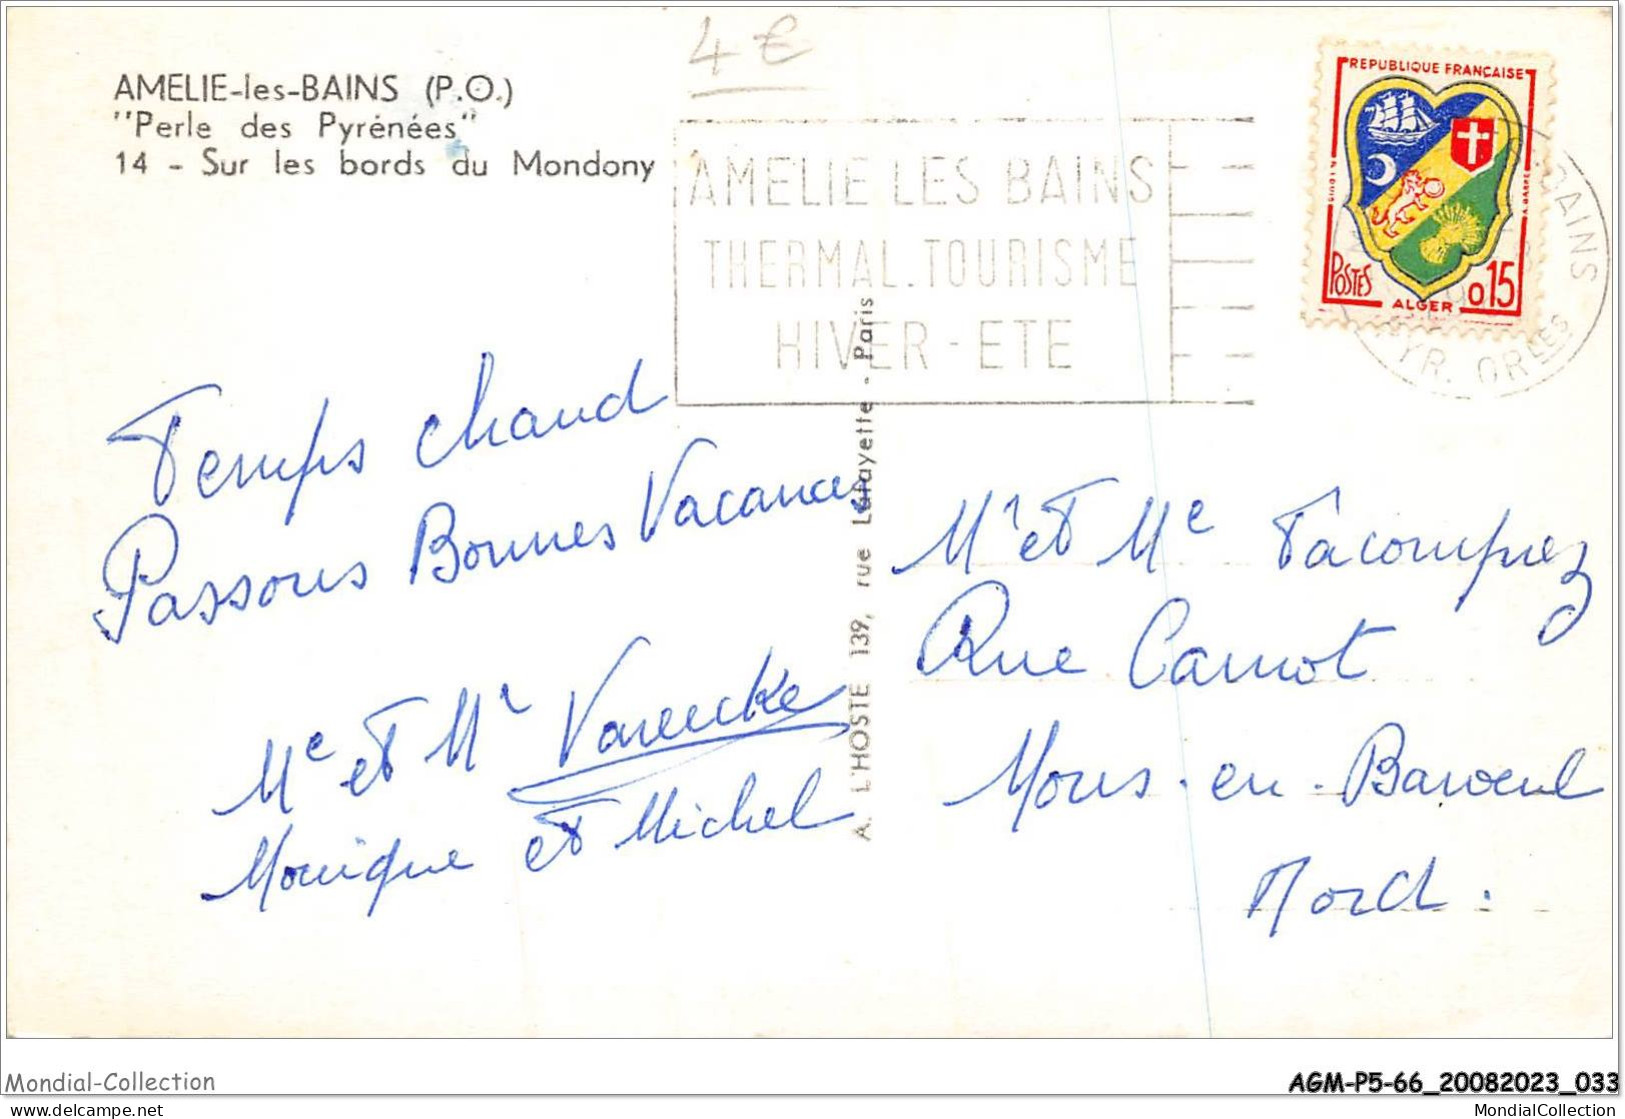 4 €
AMELIE-les-BAINS (P.O.)
"Perle des Pyrénées"
14 - Sur les bords du Mondony
AMELIE LES BAINS
THERMAL.TOURISME
HIVER-ETE
REPUBLIQUE FRANÇAISE
POSTES
ALGER
0,15
BAINS
PYR. ORLES
Temps chaud
Passons Bonnes Vacances
Me et Mr Vareecke
Monique et Michel
A. L'HOSTE 139, rue Lafayette - Paris
Mr et Me Tacompnez
Rue Carnot
Mons-en-Baroeul
Nord.
Mondial-Collection
AGM-P5-66_20082023_033
www.delcampe.net
MondialCollection